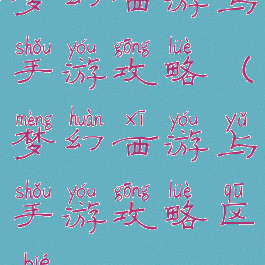 梦幻西游与
shǒu yóu gōng lüè
手游攻略（
mèng huàn xī yóu yǔ
梦幻西游与
shǒu yóu gōng lüè qū
手游攻略区
bié